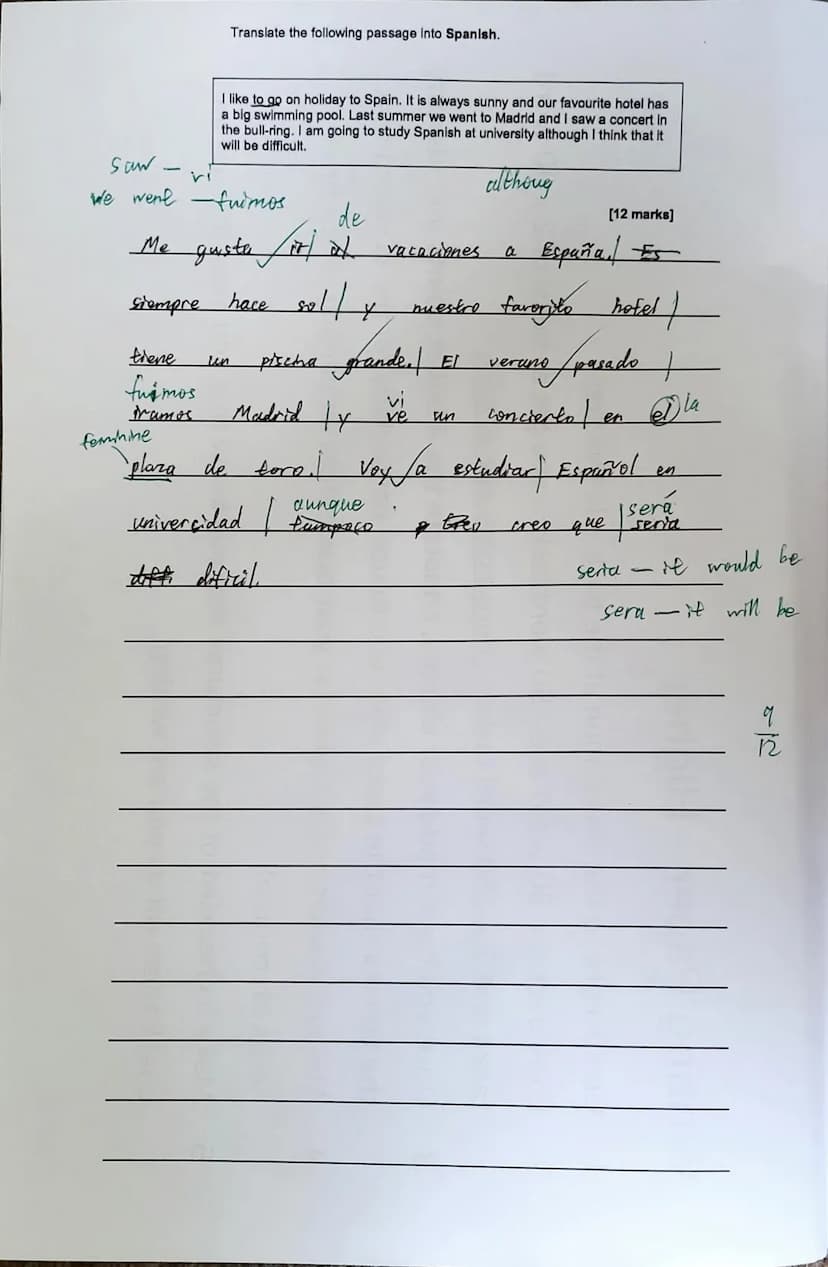 Translate the following passage into Spanish.
I like to go on holiday to Spain. It is always sunny and our favourite hotel has
a big swimming pool. Last summer we went to Madrid and I saw a concert in
the bull-ring. I am going to study Spanish at university although I think that it
will be difficult.
saw – vi
we went – fuimos
althoug
[12 marks]
de
Me gusta / ir / al vacaciones a España. / Es
siempre hace sol / y nuestro favorito hotel /
tiene un piscina grande. / El verano / pasado /
fuimos vi
iramos Madrid / y ve un concierto / en el la
feminine
plaza de toro. / Voy / a estudiar / Español en
aunque será
univercidad / tampoco creo que / seria
dificil.
seria – it would be
sera – it will be
9
12